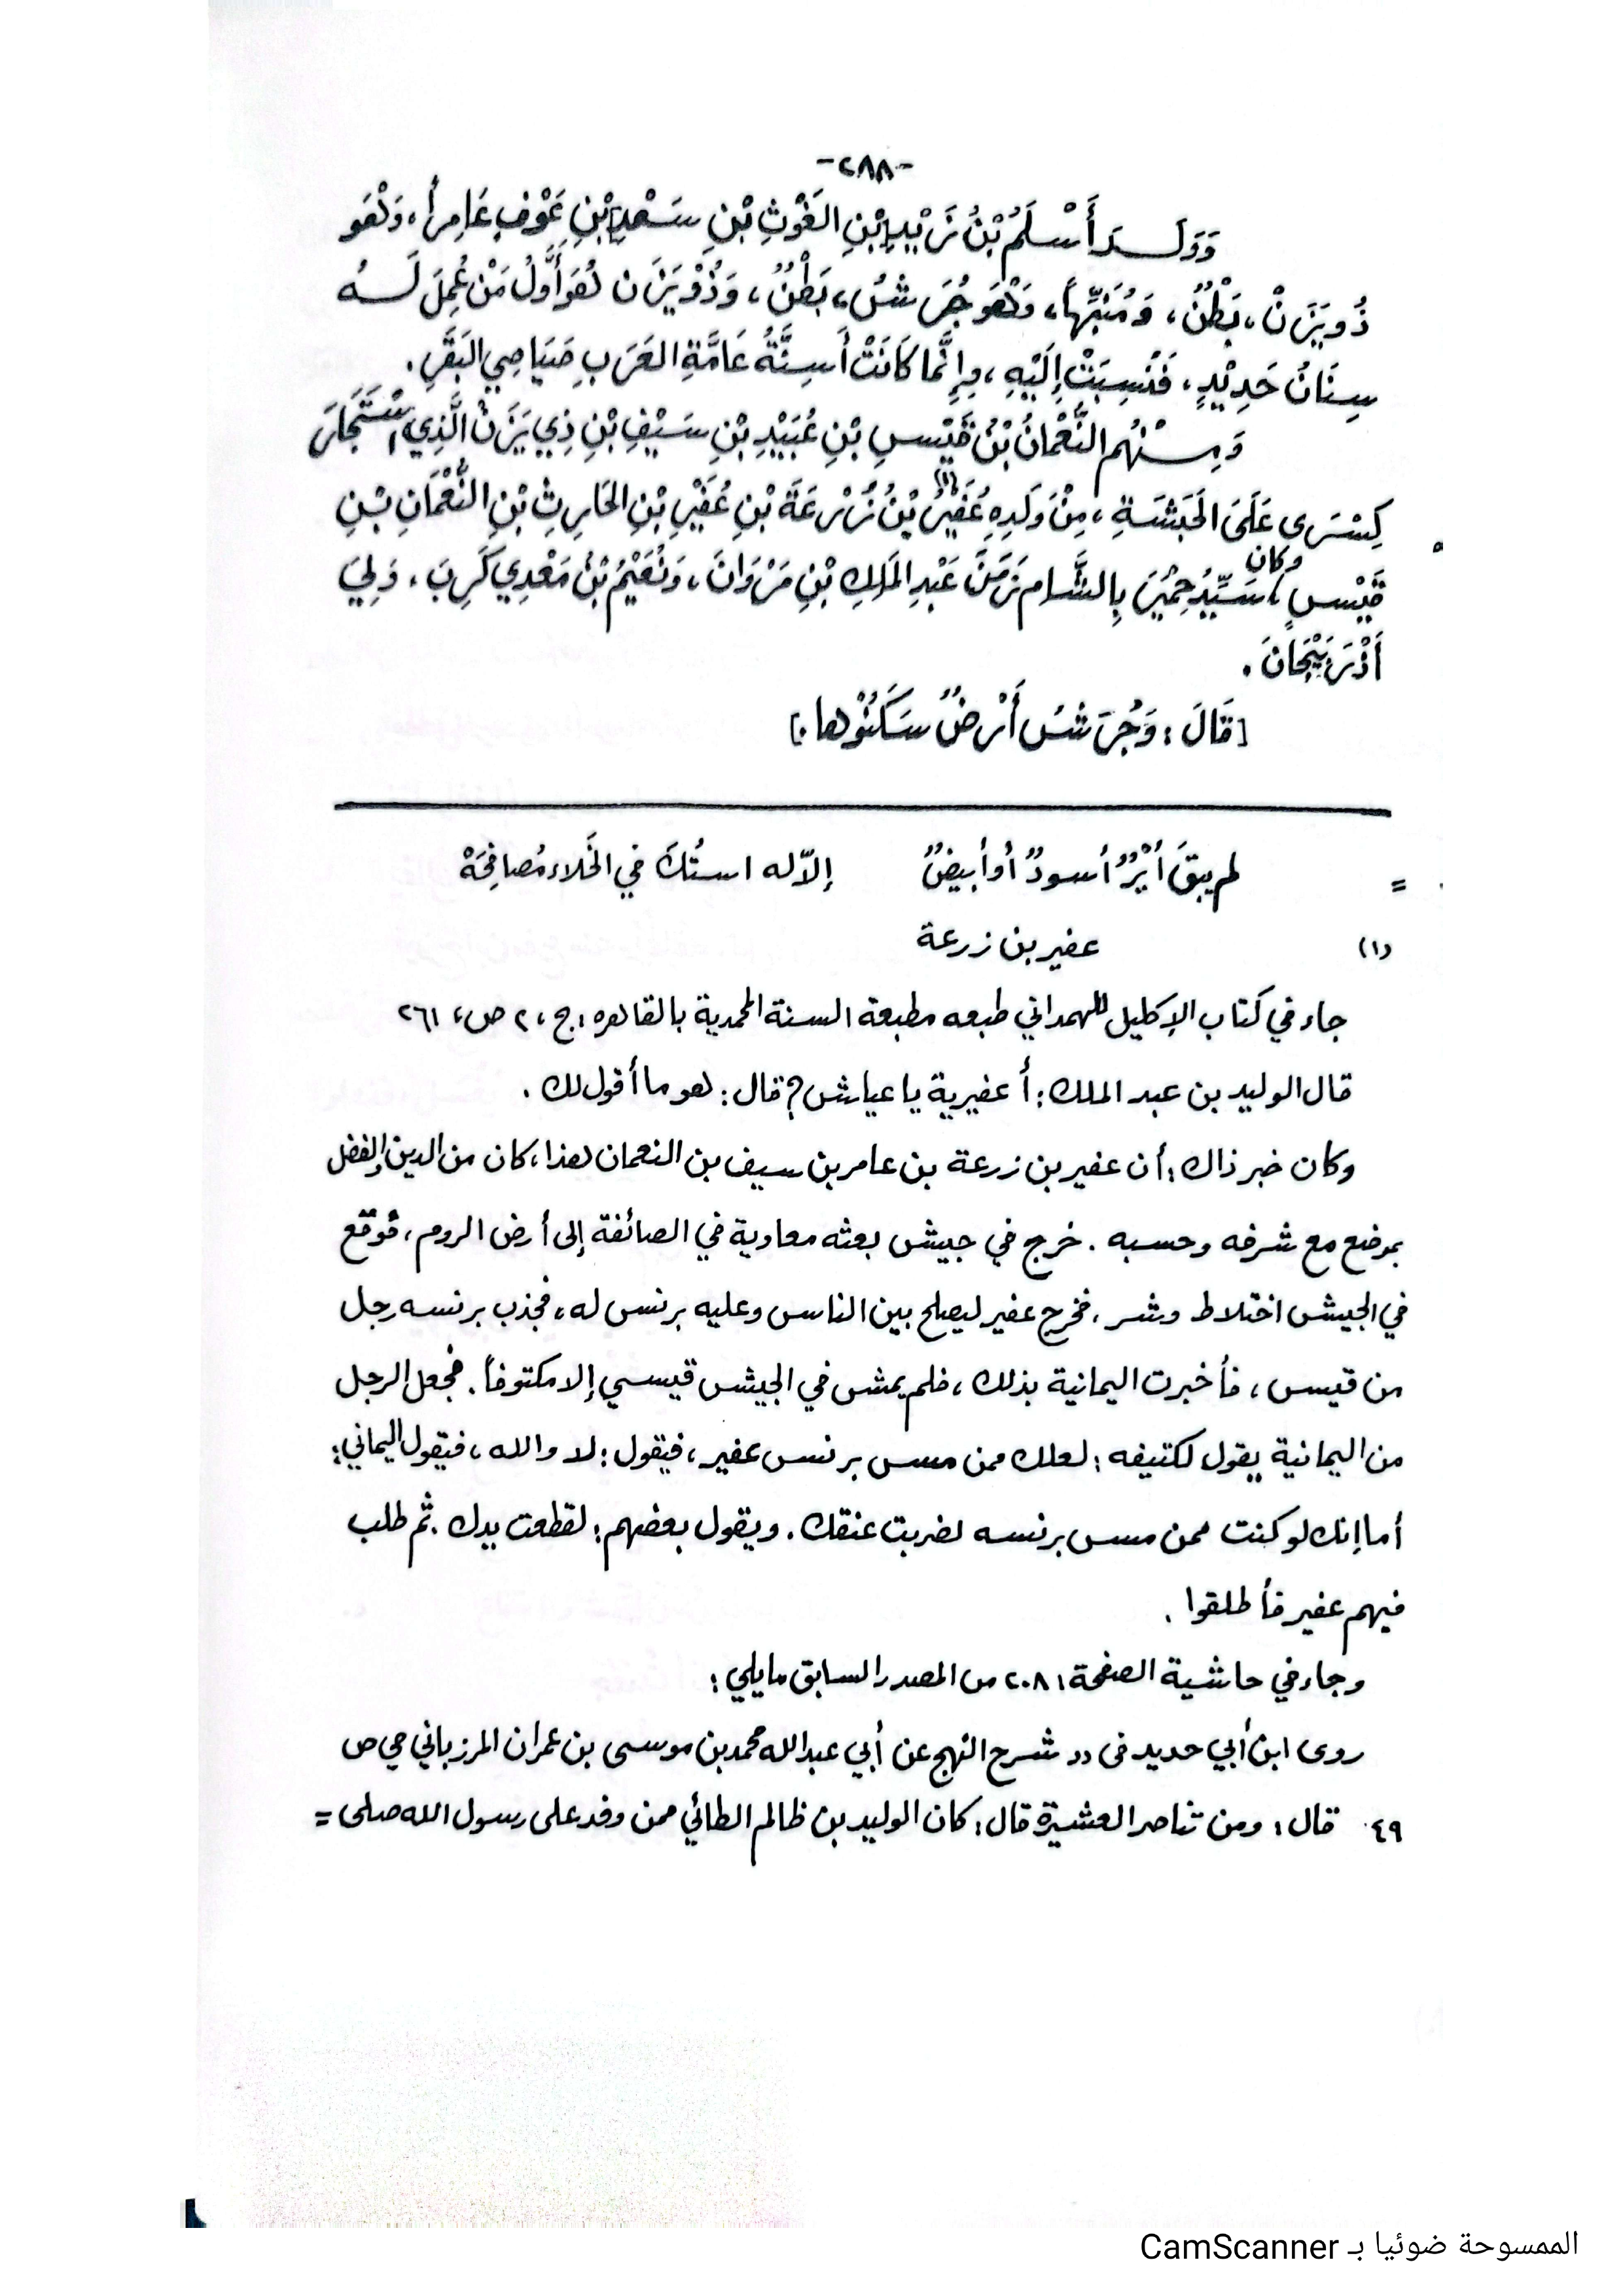 -٢٨٨-
وَوَلَــدَ أَسْلَمُ بْنُ زَيْدِ بْنِ الغَوْثِ بْنِ سَعْدِ بْنِ عَوْفٍ عَامِراً، وَهُوَ
ذُو يَزَنْ، بَطْنٌ، وَمُنَبِّهاً، وَهُوَ جُرَشُ، بَطْنٌ، وَذُوْ يَزَن هُوَ أَوَّلُ مَنْ عُمِلَ لَــهُ
سِنَانُ حَدِيْدٍ، فَنُسِبَتْ إِلَيْهِ، وإِنَّمَا كَانَتْ أَسِنَّةُ عَامَّةِ العَرَبِ صَيَاصِي البَقَرِ.
وَمِــنْهُم النُّعْمَانُ بْنُ قَيْسِ بْنِ عُبَيْدِ بْنِ سَيْفِ بْنِ ذِي يَزَنْ الَّذِي اسْتَجَارَ
كِسْرَى عَلَىَ الحَبَشَةِ، مِنْ وَلَدِهِ عُفَيْرُ(١) بْنُ زُرْعَةَ بْنِ عُفَيْرِ بْنِ الحَارِثِ بْنِ النُّعْمَانِ بْنِ
قَيْسٍ، وكان سَيِّدُ حِمْيَرَ بِالشَّام زَمَنَ عَبْدِ المَلِكِ بْنِ مَرْوَانَ، وَنُعَيْمُ بْنُ مَعْدِي كَرِبَ، وَلِيَ
أَذْرَبَيْجَانَ.
[قَالَ: وَجُرَشُ أَرْضٌ سَكَنُوْها.]
= لم يبقَ أَيْرٌ أسودٌ أو أبيضٌ إلاّ له استُكَ في الخَلاء مُصافِحَهْ
(١) عفير بن زرعة
جاء في كتاب الإكليل للهمداني طبعه مطبعة السنة المحمدية بالقاهره ، ج، ٢ ص، ٢٦١
قال الوليد بن عبد الملك: أ عفيرية يا عياش؟ قال: هو ما أقول لك.
وكان خبر ذاك: أن عفير بن زرعة بن عامر بن سيف بن النعمان هذا، كان من الدين والفضل
بموضع مع شرفه وحسبه. خرج في جيش بعثه معاوية في الصائفة إلى أرض الروم، فوقع
في الجيش اختلاط وشر، فخرج عفير ليصلح بين الناس وعليه برنس له، فجذب برنسه رجل
من قيس، فأخبرت اليمانية بذلك، فلم يمش في الجيش قيسي إلا مكتوفاً. فجعل الرجل
من اليمانية يقول لكتيفه: لعلك ممن مس برنس عفير، فيقول: لا والله، فيقول اليماني:
أما إنك لو كنت ممن مس برنسه لضربت عنقك. ويقول بعضهم: لقطعت يدك. ثم طلب
فيهم عفير فأطلقوا.
وجاء في حاشية الصفحة من المصدر السابق مايلي:
روى ابن أبي حديد فى (( شرح النهج عن أبي عبدالله محمد بن موسى بن عمران المرزباني ص
٤٩ قال: ومن تناصر العشيرة قال: كان الوليد بن ظالم الطائي ممن وفد على رسول الله صلى =
الممسوحة ضوئيا بـ CamScanner